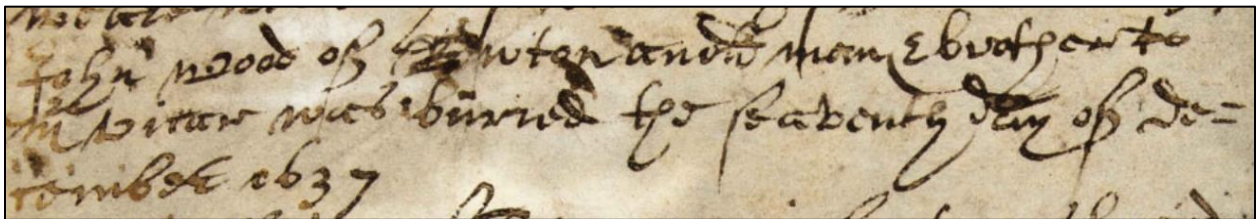 John Wood of Newton an old man & brother to
mr Vicar was buried the seaventh day of de=
cember 1637